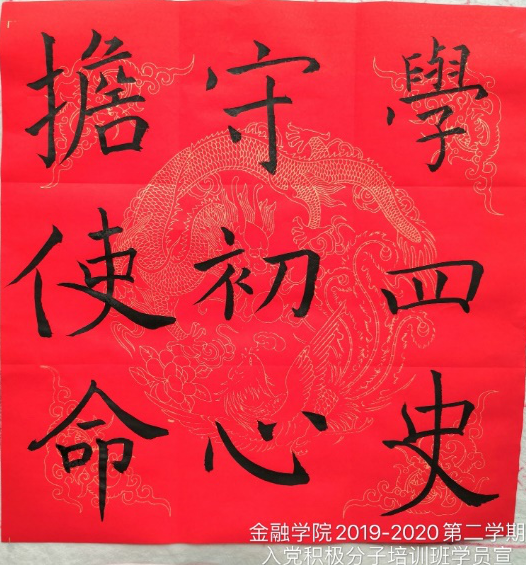 學四史
守初心
擔使命
金融学院2019-2020第二学期
入党积极分子培训班学员宣